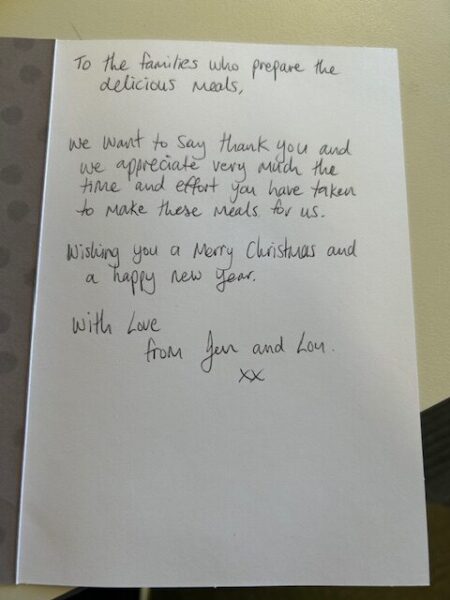 To the families who prepare the
delicious meals,
We want to say thank you and
we appreciate very much the
time and effort you have taken
to make these meals for us.
Wishing you a Merry Christmas and
a happy new year.
With Love
from Jen and Lou.
xx